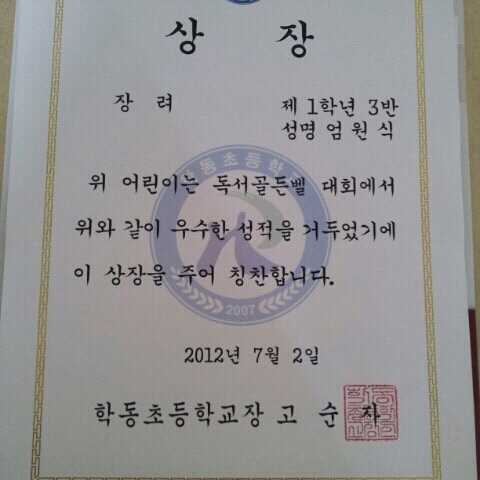 상 장
장 려
제 1학년 3반
성명 엄 원 식
위 어린이는 독서골든벨 대회에서
위와 같이 우수한 성적을 거두었기에
이 상장을 주어 칭찬합니다.
2007
2012년 7월 2일
학동초등학교장 고 순 자